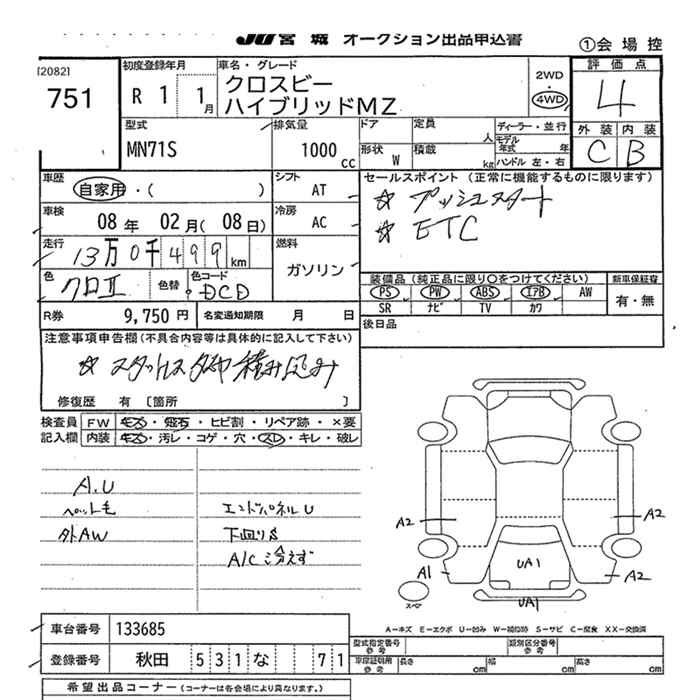 JU 宮 城 オークション出品申込書
①会 場 控
[2082]
751
初度登録年月
R 1 1 月
車名・グレード
クロスビー
ハイブリッドMZ
2WD
・
4WD
評 価 点
4
外 装 内 装
C B
型式
MN71S
排気量
1000 cc
ドア
形状 W
定員 人
積載 kg
ディーラー・並行
モデル年式 年
ハンドル 左・右
車歴
自家用・( )
シフト
AT
セールスポイント (正常に機能するものに限ります)
☆ プッシュスタート
☆ ETC
車検
08 年 02 月 ( 08 日)
冷房
AC
走行
13万0千499 km
燃料
ガソリン
色
クロⅡ
色替
色コード
DCD
装備品 (純正品に限り○をつけてください)
新車保証書
PS PW ABS エアB AW
SR ナビ TV カワ
有・無
R券 9,750 円
名変通知期限 月 日
後日品
注意事項申告欄(不具合内容等は具体的に記入して下さい)
☆ スタットレスタイヤ積み込み
修復歴 有 〔箇所 〕
検査員記入欄
FW キズ・飛石・ヒビ割・リペア跡・×要
内装 キズ・汚レ・コゲ・穴・スレ・キレ・破レ
A.U
ペット毛
外AW
エンドパネルU
下廻りS
A/C冷えず
A2
A2
A1
A2
UA1
UA1
スペア
A-キズ E-エクボ U-凹み W-補修跡 S-サビ C-腐食 XX-交換済
車台番号 133685
登録番号 秋田 531 な 71
型式指定番号
参 考
類別区分番号
参 考
車庫証明用
参 考
長さ cm
幅 cm
高さ cm
希望出品コーナー (コーナーは各会場により異なります。)